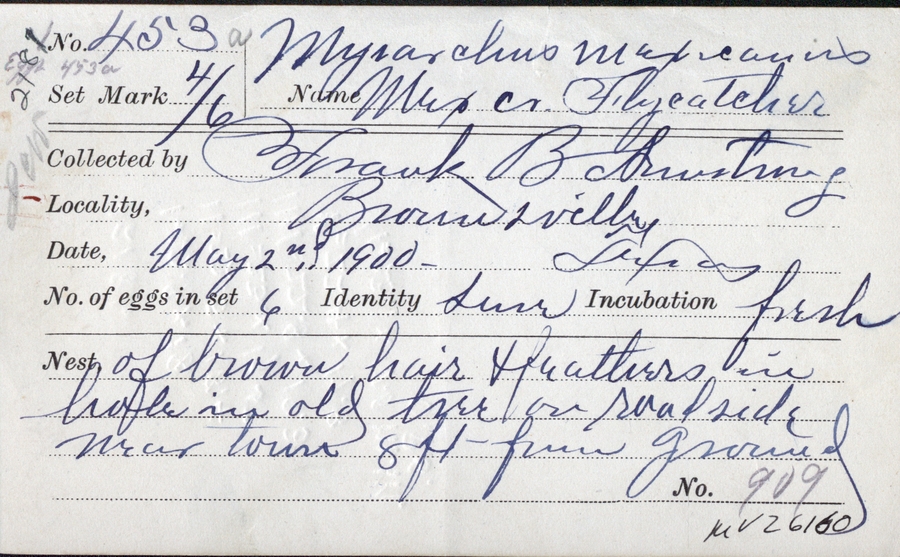 No. 453 a Myiarchus mexicanus
Eggs 453a
Set Mark 4/6 Name Mex cr. Flycatcher
Collected by Frank B Armstrong
Locality, Brownsville,
Date, May 2nd, 1900 - Texas
No. of eggs in set 6 Identity sure Incubation fresh
Nest, of brown hair & feathers in
hole in old tree on roadside
near town 8 ft - from ground
No. 909
MVZ 6160